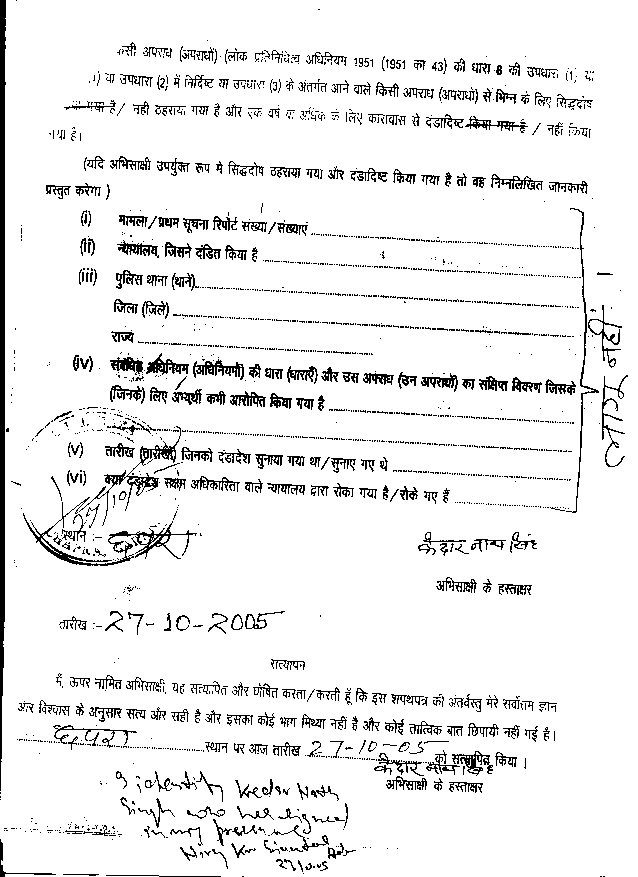 किसी अपराध (अपराधों) (लोक प्रतिनिधित्व अधिनियम 1951 (1951 का 43) की धारा 8 की उपधारा (1) या
(1) या उपधारा (2) में निर्दिष्ट या उपधारा (3) के अंतर्गत आने वाले किसी अपराध (अपराधों) से भिन्न के लिए सिद्धदोष
गया है / नहीं ठहराया गया है और एक वर्ष या अधिक के लिए कारावास से दंडादिष्ट किया गया है / नहीं किया
गया है।
(यदि अभिसाक्षी उपर्युक्त रूप मे सिद्धदोष ठहराया गया और दंडादिष्ट किया गया है तो वह निम्नलिखित जानकारी
प्रस्तुत करेगा )
(i) मामला/प्रथम सूचना रिपोर्ट संख्या/संख्याएं
(ii) न्यायालय, जिसने दंडित किया है
(iii) पुलिस थाना (थाने)
जिला (जिले)
राज्य
लागू नहीं
(iv) संबंधित अधिनियम (अधिनियमों) की धारा (धाराएँ) और उस अपराध (उन अपराधों) का संक्षिप्त विवरण जिसके
(जिनके) लिए अभ्यर्थी कभी आरोपित किया गया है
(v) तारीख (तारीखें) जिनको दंडादेश सुनाया गया था/सुनाए गए थे
(vi) क्या दंडादेश सक्षम अधिकारिता वाले न्यायालय द्वारा रोका गया है/रोके गए हैं
27/10/05
स्थान :- छपरा
केदार नाथ सिंह
अभिसाक्षी के हस्ताक्षर
तारीख :- 27-10-2005
सत्यापन
मैं, ऊपर नामित अभिसाक्षी, यह सत्यापित और घोषित करता/करती हूँ कि इस शपथपत्र की अंतर्वस्तु मेरे सर्वोत्तम ज्ञान
और विश्वास के अनुसार सत्य और सही है और इसका कोई भाग मिथ्या नहीं है और कोई तात्विक बात छिपायी नहीं गई है।
छपरा स्थान पर आज तारीख 27-10-05 को सत्यापित किया।
केदार नाथ सिंह
अभिसाक्षी के हस्ताक्षर
I identify Kedar Nath
Singh who has signed
in my presence
27/10/05